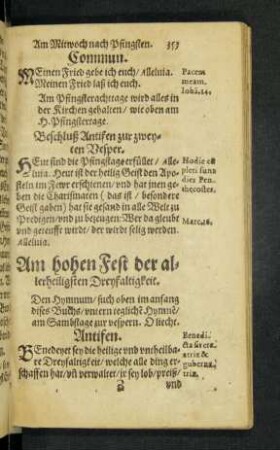 Am Mitwoch nach Pfingsten. 357
Commun.
MEinen Fried gebe ich euch/ Alleluia.
Meinen Fried laß ich euch.
Pacem
meam.
Ioha.14.
Am Pfingsterachttage wird alles in
der Kirchen gehalten/ wie oben am
H. Pfingstertage.
Beschluß Antifen zur zwey-
ten Vesper.
HEut sind die Pfingstage erfüllet/ Alle-
luia. Heut ist der heilig Geist den Apo-
steln im Fewr erschienen/ vnd hat jnen ge-
ben die Charismaten (das ist/ besondere
Geist gaben) hat sie gesand in alle Welt zu
Predigen/ vnd zu bezeugen: Wer da gleubt
vnd geteufft wird/ der wird selig werden.
Alleluia.
Hodie cō
pleti sunt
dies Pen-
thecostes.
Marc.16.
Am hohen Fest der al-
lerheiligsten Dreyfaltigkeit.
Den Hymnum/ such oben im anfang
dises Buchs/ vntern teglichē Hymnē/
am Sambstage zur vespern. O liecht.
Antifen.
BEnedeyet sey die heilige vnd vnzteilba-
re Dreyfaltigkeit/ welche alle ding er-
schaffen hat/ vñ verwaltet/ jr sey lob/ preiß/
Benedi-
cta sit cre-
atrix &
gubernatrix
vnd